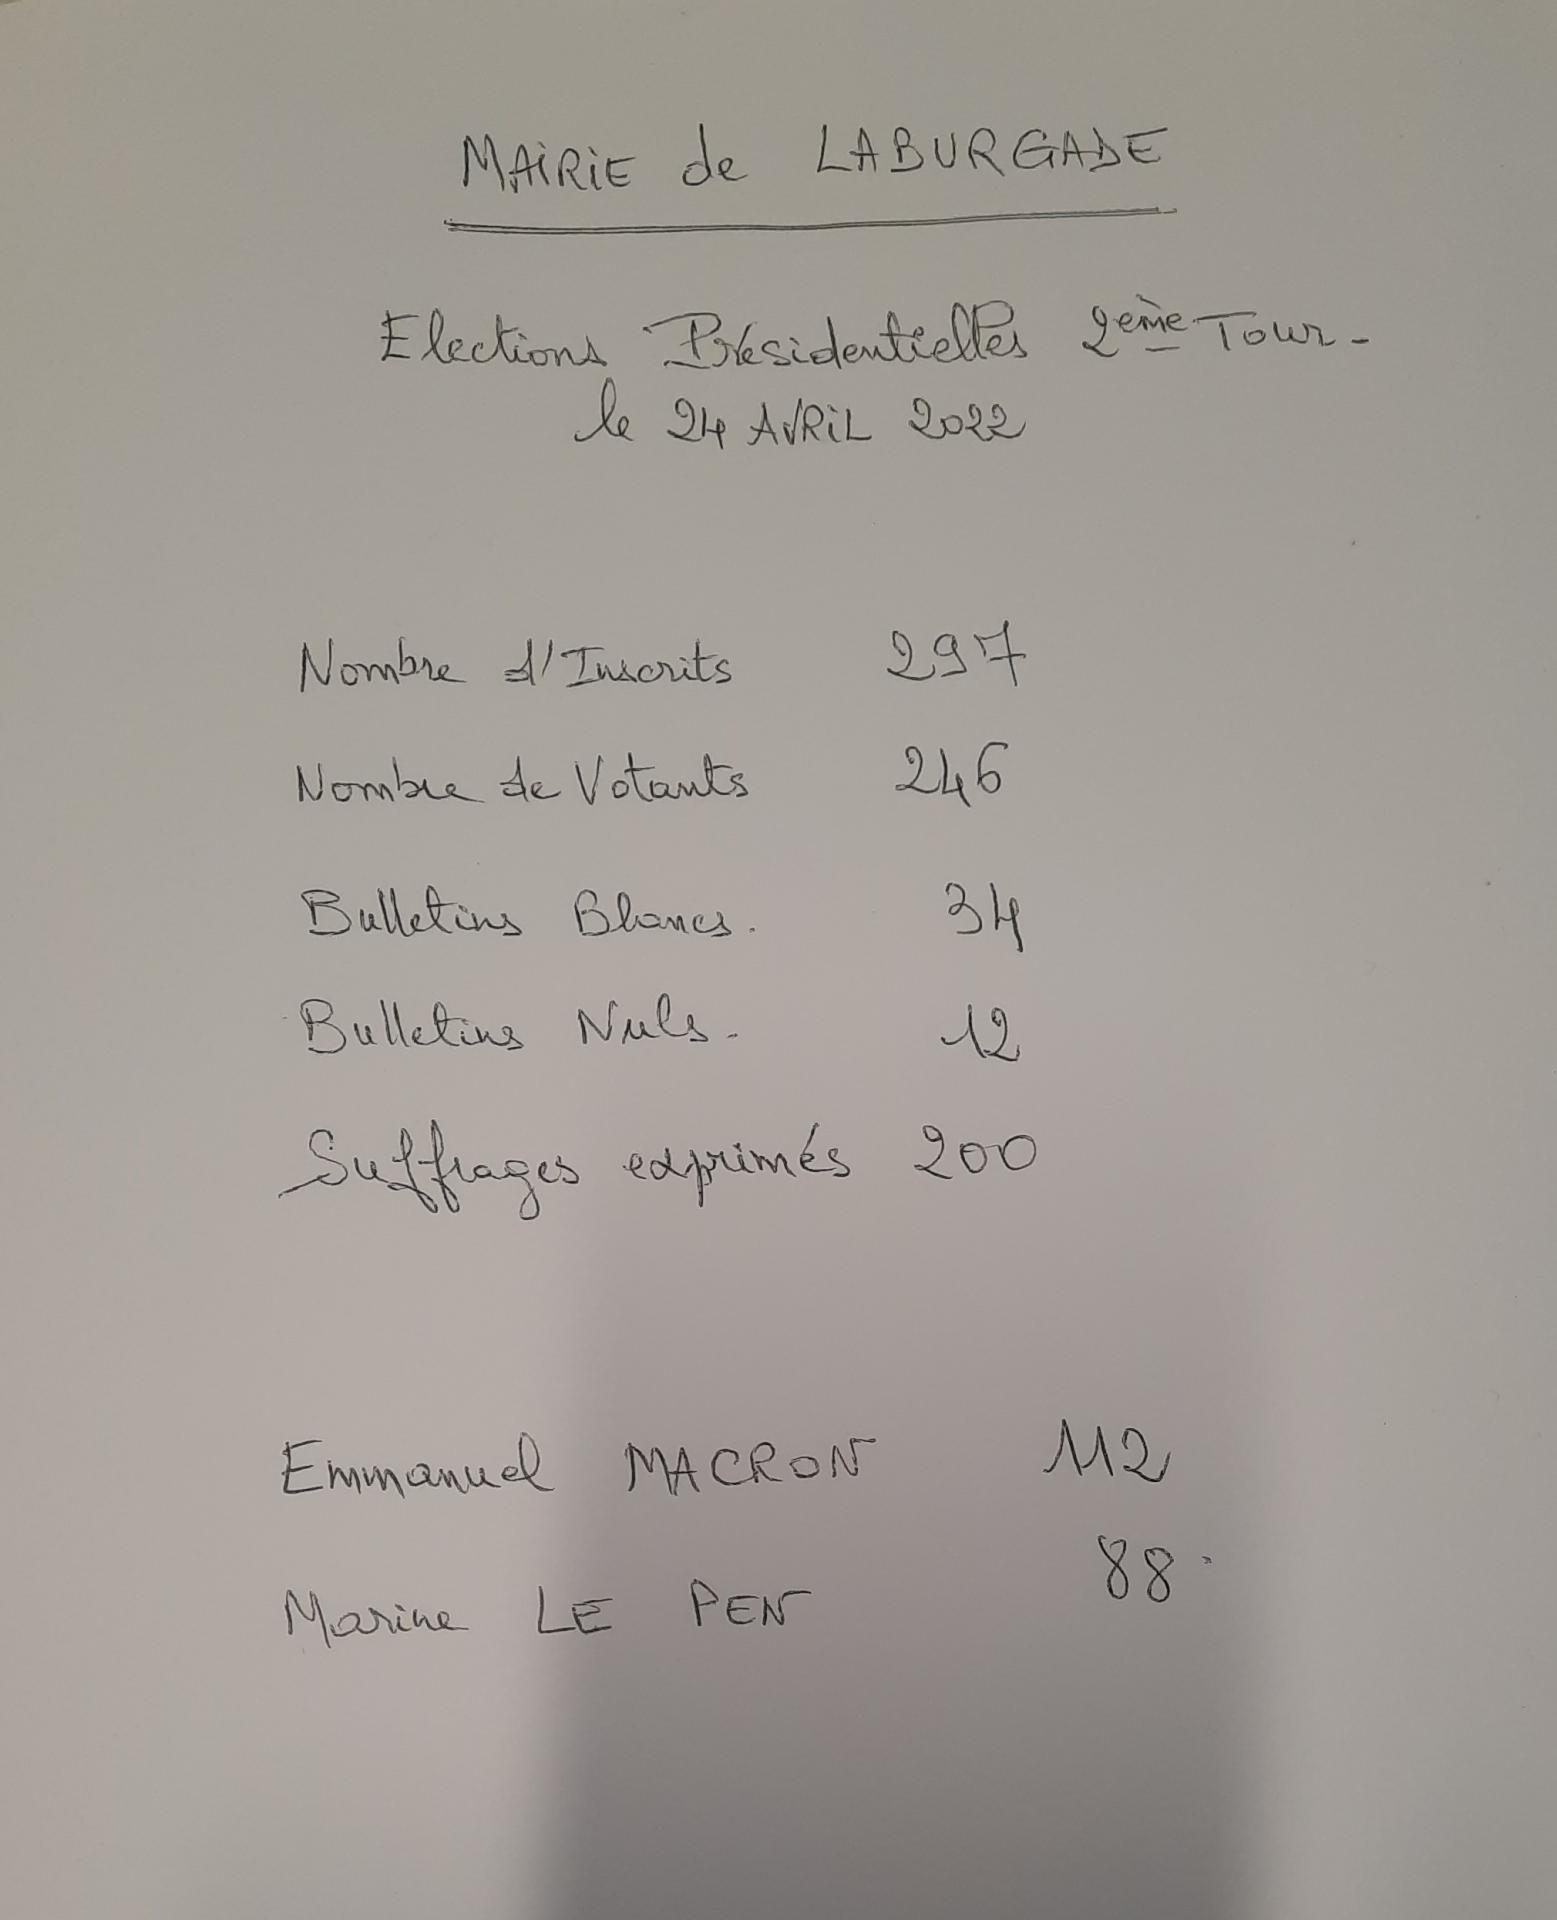 MAiRiE de LABURGADE
Elections Présidentielles 2ème Tour.
le 24 AVRiL 2022
Nombre d'Inscrits 297
Nombre de Votants 246
Bulletins Blancs. 34
Bulletins Nuls. 12
Suffrages exprimés 200
Emmanuel MACRON 112
Marine LE PEN 88